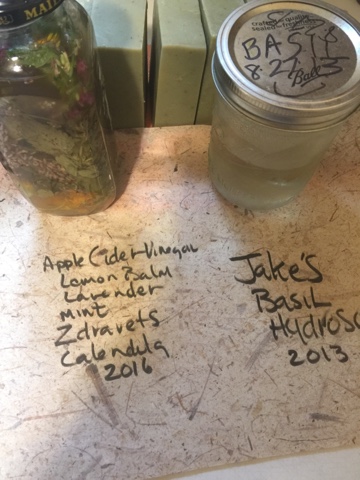 MAI
BASIL
8.27.13
Ball
Apple Cider Vinegar
Lemon Balm
Lavender
Mint
Zdravets
Calendula
2016
Jake's
Basil
Hydroso
2013